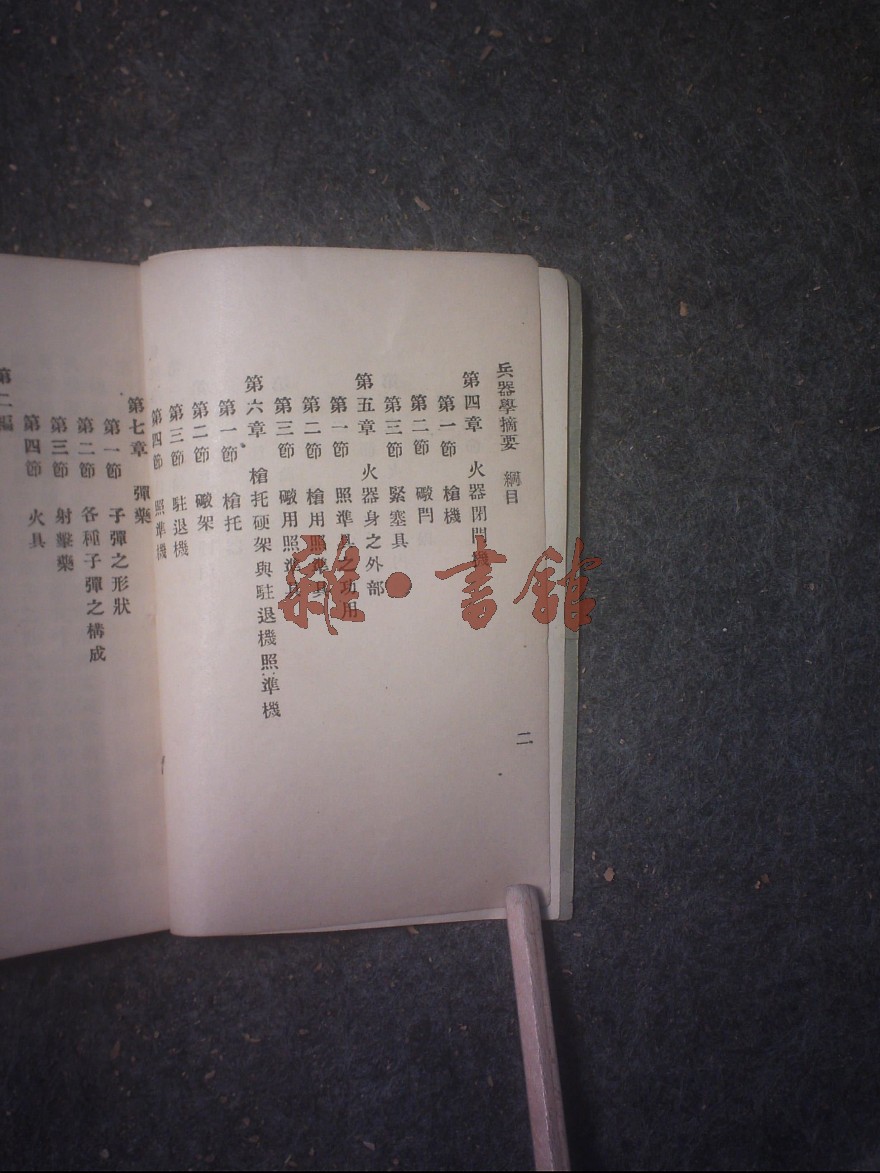 兵器學摘要 綱目
第四章 火器閉閂機
第一節 槍機
第二節 礮門
第三節 緊塞具
第五章 火器身之外部
第一節 照準具之功用
第二節 槍用照準具
第三節 礮用照準具
第六章 槍托硬架與駐退機照準機
第一節 槍托
第二節 礮架
第三節 駐退機
第四節 照準機
二
第七章 彈藥
第一節 子彈之形狀
第二節 各種子彈之構成
第三節 射擊藥
第四節 火具
第二編
雜·書館